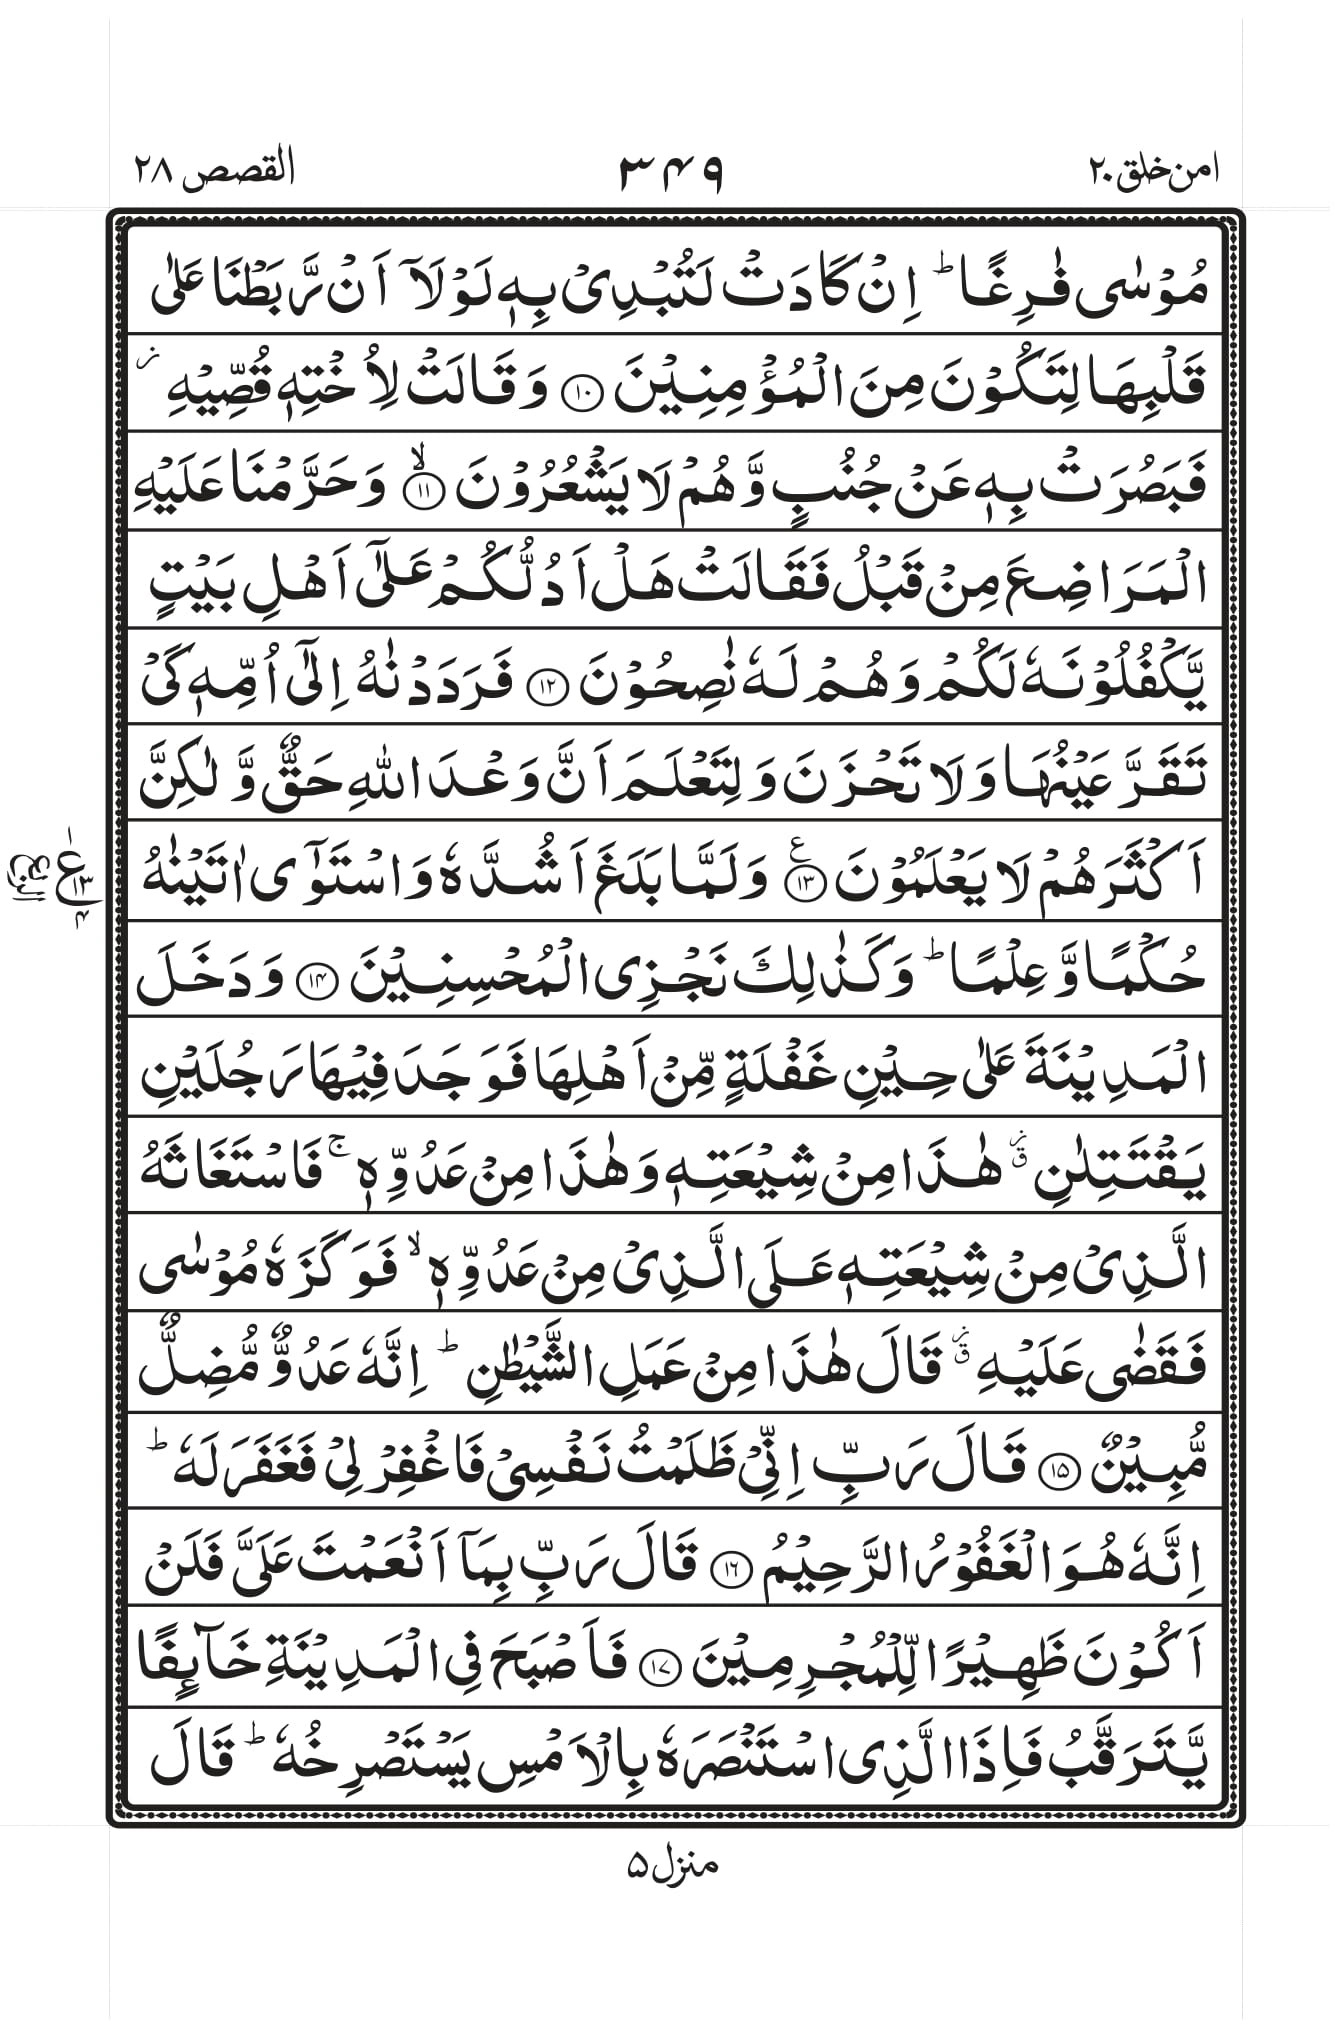 امن خلق ٢٠ ٣٤٩ القصص ٢٨
مُوْسٰى فٰرِغًا ؕ اِنْ كَادَتْ لَتُبْدِىْ بِهٖ لَوْلَاۤ اَنْ رَّبَطْنَا عَلٰى
قَلْبِهَا لِتَكُوْنَ مِنَ الْمُؤْمِنِيْنَ ﴿١٠﴾ وَقَالَتْ لِاُخْتِهٖ قُصِّيْهِ ز
فَبَصُرَتْ بِهٖ عَنْ جُنُبٍ وَّهُمْ لَا يَشْعُرُوْنَ ۙ﴿١١﴾ وَحَرَّمْنَا عَلَيْهِ
الْمَرَاضِعَ مِنْ قَبْلُ فَقَالَتْ هَلْ اَدُلُّكُمْ عَلٰٓى اَهْلِ بَيْتٍ
يَّكْفُلُوْنَهٗ لَكُمْ وَهُمْ لَهٗ نٰصِحُوْنَ ﴿١٢﴾ فَرَدَدْنٰهُ اِلٰٓى اُمِّهٖ كَىْ
تَقَرَّ عَيْنُهَا وَلَا تَحْزَنَ وَلِتَعْلَمَ اَنَّ وَعْدَ اللهِ حَقٌّ وَّلٰكِنَّ
اَكْثَرَهُمْ لَا يَعْلَمُوْنَ ﴿١٣﴾ ع وَلَمَّا بَلَغَ اَشُدَّهٗ وَاسْتَوٰٓى اٰتَيْنٰهُ
١ ع ١٣ ٤
حُكْمًا وَّعِلْمًا ؕ وَكَذٰلِكَ نَجْزِى الْمُحْسِنِيْنَ ﴿١٤﴾ وَدَخَلَ
الْمَدِيْنَةَ عَلٰى حِيْنِ غَفْلَةٍ مِّنْ اَهْلِهَا فَوَجَدَ فِيْهَا رَجُلَيْنِ
يَقْتَتِلٰنِ قز هٰذَا مِنْ شِيْعَتِهٖ وَهٰذَا مِنْ عَدُوِّهٖ ۚ فَاسْتَغَاثَهُ
الَّذِىْ مِنْ شِيْعَتِهٖ عَلَى الَّذِىْ مِنْ عَدُوِّهٖ ۙ فَوَكَزَهٗ مُوْسٰى
فَقَضٰى عَلَيْهِ قز قَالَ هٰذَا مِنْ عَمَلِ الشَّيْطٰنِ ؕ اِنَّهٗ عَدُوٌّ مُّضِلٌّ
مُّبِيْنٌ ﴿١٥﴾ قَالَ رَبِّ اِنِّىْ ظَلَمْتُ نَفْسِىْ فَاغْفِرْ لِىْ فَغَفَرَ لَهٗ ؕ
اِنَّهٗ هُوَ الْغَفُوْرُ الرَّحِيْمُ ﴿١٦﴾ قَالَ رَبِّ بِمَاۤ اَنْعَمْتَ عَلَىَّ فَلَنْ
اَكُوْنَ ظَهِيْرًا لِّلْمُجْرِمِيْنَ ﴿١٧﴾ فَاَصْبَحَ فِى الْمَدِيْنَةِ خَآئِفًا
يَّتَرَقَّبُ فَاِذَا الَّذِى اسْتَنْصَرَهٗ بِالْاَمْسِ يَسْتَصْرِخُهٗ ؕ قَالَ
منزل ٥